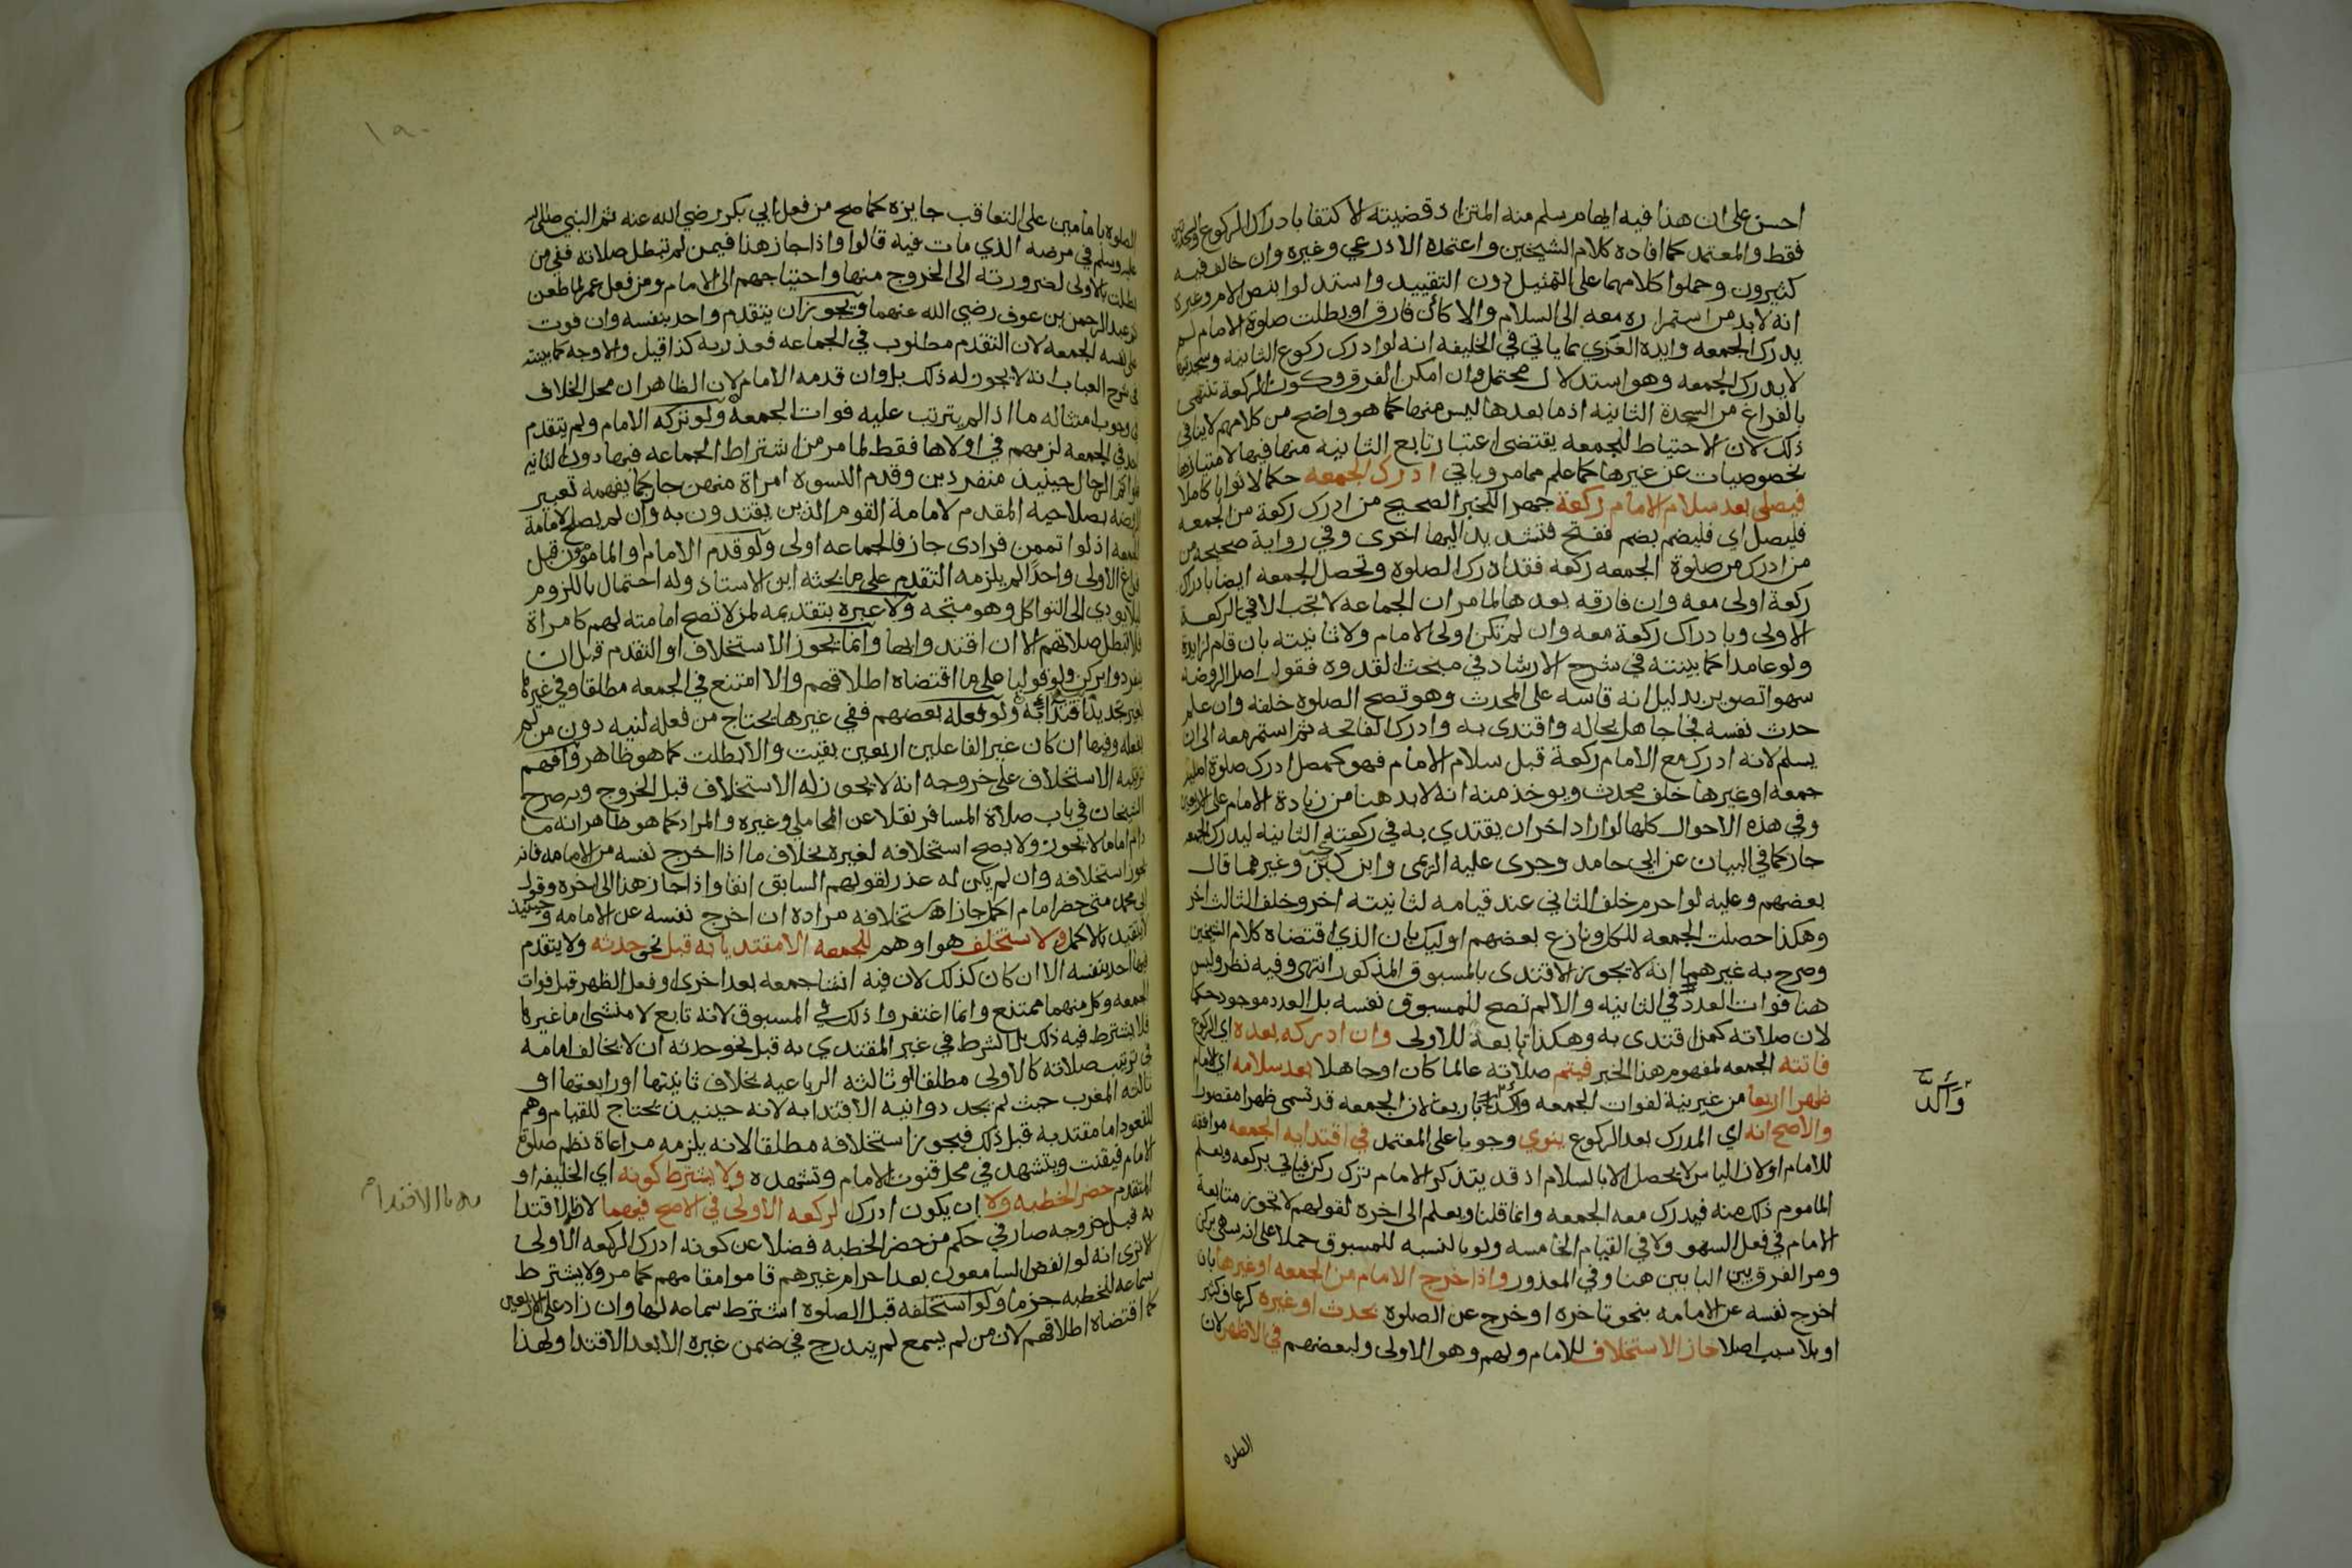 احسن على ان هذا فيه ايهام سلم منه المتن اذ قضيته الاكتفا بادراك الركوع والسجدتين
فقط والمعتمد كما افاده كلام الشيخين واعتمده الاذرعي وغيره وان خالف فيه
كثيرون وحملوا كلامهما على التمثيل دون التقييد واستدلوا بنص الام وغيره
انه لا بد من استمراره معه الى السلام والا كأن فارق او بطلت صلوة الامام لم
يدرك الجمعه وايده الغزي بما ياتي في الخليفه انه لو ادرك ركوع الثانيه وسجدتيها
لا يدرك الجمعه وهو استدلال محتمل وان امكن الفرق وكون الركعة تنتهي
بالفراغ من السجدة الثانيه اذ ما بعدها ليس منها كما هو واضح من كلامهم لا ينافي
ذلك لان الاحتياط للجمعه يقتضي اعتبار تابع الثانيه منها فيها لامتيازها
بخصوصيات عن غيرها كما علم مما مر وياتي ادرك الجمعه حكما لا ثوابا كاملا
فيصلي بعد سلام الامام ركعة جهرا للخبر الصحيح من ادرك ركعة من الجمعه
فليصل اي فليضم بضم ففتح فتشديد اليها اخرى وفي رواية صحيحه من
من ادرك من صلوة الجمعه ركعة فقد ادرك الصلوة وتحصل الجمعه ايضا بادراك
ركعة اولى معه وان فارقه بعدها لما مر ان الجماعه لا تجب الا في الركعة
الاولى وبادراك ركعة معه وان لم تكن اولى الامام ولا ثانيته بان قام لزايدة
ولو عامدا كما بينته في شرح الارشاد في مبحث القدوه فقول اصل الروضه
سهوا تصوير بدليل انه قاسه على المحدث وهو تصح الصلوة خلفه وان علم
حدث نفسه فجا جاهل بحاله واقتدى به وادرك الفاتحه ثم استمر معه الى ان
يسلم لانه ادرك مع الامام ركعة قبل سلام الامام فهو كمصل ادرك صلوة اصليه
جمعه او غيرها خلف محدث ويوخذ منه انه لا بد هنا من زيادة الامام على الاربعين
وفي هذه الاحوال كلها لو اراد اخر ان يقتدي به في ركعته الثانيه ليدرك الجمعه
جاز كما في البيان عن ابي حامد وجرى عليه الريمي وابن كبن وغيرهما قال
بعضهم وعليه لو احرم خلف الثاني عند قيامه لثانيته اخر وخلف الثالث اخر
وهكذا حصلت الجمعه للكل ونازع بعضهم اوليك بان الذي اقتضاه كلام الشيخين
وصرح به غيرهما انه لا يجوز الاقتدى بالمسبوق المذكور انتهى وفيه نظر وليس
هنا فوات العدد في الثانيه والا لم تصح للمسبوق نفسه بل العدد موجود حكما
لان صلاته كمن اقتدى به وهكذا تابعة للاولى وان ادركه بعده اي الركوع
فاتته الجمعه لمفهوم هذا الخبر فيتم صلاته عالما كان او جاهلا بعد سلامه اي الامام
ظهرا اربعا من غير نية لفوات الجمعه واكد باربعا لان الجمعه قد تسمى ظهرا مقصورا
والاصح انه اي المدرك بعد الركوع ينوي وجوبا على المعتمد في اقتدايه الجمعه موافقه
للامام او لان الياس لا يحصل الا بالسلام اذ قد يتذكر الامام ترك ركن فياتي بركعه ويعلم
الماموم ذلك منه فيدرك معه الجمعه وانما قلنا ويعلم الى اخره لقولهم لا تجوز متابعة
الامام في فعل السهو ولا في القيام لخامسه ولو بالنسبه للمسبوق حملا على انه سهى بركن
ومر الفرق بين البابين هنا وفي المعذور واذا خرج الامام من الجمعه او غيرها بان
اخرج نفسه عن الامامه بنحو تاخره او خرج عن الصلوة بحدث او غيره كرعاف كثير
او بلا سبب اصلا جاز الاستخلاف للامام ولهم وهو الاولى ولبعضهم في الاظهر لان
الصلوة
الصلوة بامامين على التعاقب جايزه كما صح من فعل ابي بكر رضي الله عنه ثم النبي صلى الله
عليه وسلم في مرضه الذي مات فيه قالوا واذا جاز هذا فيمن لم تبطل صلاته ففي من
بطلت بالاولى لضرورته الى الخروج منها واحتياجهم الى الامام ومن فعل عمر لما طعن
عبد الرحمن بن عوف رضي الله عنهما ويجوز ان يتقدم واحد بنفسه وان فوت
على نفسه الجمعه لان التقدم مطلوب في الجماعه فعذر به كذا قيل والاوجه كما بينته
في شرح العباب انه لا يجوز له ذلك بل وان قدمه الامام لان الظاهر ان محل الخلاف
في وجوب امتثاله ما اذا لم يترتب عليه فوات الجمعه ولو تركه الامام ولم يتقدم
احد في الجمعه لزمهم في اولاها فقط لما مر من اشتراط الجماعه فيها دون الثانيه
الرجال حينيذ منفردين وقدم النسوة امراة منهن جاز كما يفهمه تعبير
بصلاحية المقدم لامامة القوم الذين يقتدون به وان لم يصلح لامامة
الجمعه اذ لو اتممن فرادى جاز فالجماعه اولى ولو قدم الامام والمامومون قبل
فراغ الاولى واحدا لم يلزمه التقدم على ما بحثه ابن الاستاذ وله احتمال باللزوم
ليلا يودي الى التواكل وهو متجه ولا عبرة بتقديمه لمن لا تصح امامته لهم كامراة
فلا تبطل صلاتهم الا ان اقتدوا بها وانما يجوز الاستخلاف او التقدم قبل ان
ينفردوا بركن ولو قوليا على ما اقتضاه اطلاقهم والا امتنع في الجمعه مطلقا وفي غيرها
بغير تجديد نية اقتدا به ولو فعله بعضهم ففي غيرها يحتاج من فعله لنيه دون من لم
يفعله وفيها ان كان غير الفاعلين اربعين بقيت والا بطلت كما هو ظاهر وافهم
ترتيبه الاستخلاف على خروجه انه لا يجوز له الاستخلاف قبل الخروج وبه صرح
الشيخان في باب صلاة المسافر نقلا عن المحاملي وغيره والمراد كما هو ظاهر انه ما
دام اماما لا يجوز ولا يصح استخلافه لغيره بخلاف ما اذا اخرج نفسه من الامامه فانه
يجوز استخلافه وان لم يكن له عذر لقولهم السابق انفا واذا جاز هذا الى اخره وقول
ابي محمد متى حضر امام اكمل جاز استخلافه مراده ان اخرج نفسه عن الامامه وحينيذ
لا يتقيد بالاكمل ولا يستخلف هو او هم للجمعه الا مقتديا به قبل نحو حدثه ولا يتقدم
فيها احد بنفسه الا ان كان كذلك لان فيه انشا جمعه بعد اخرى او فعل الظهر قبل فوات
الجمعه وكل منهما ممتنع وانما اغتفروا ذلك في المسبوق لانه تابع لا منشي اما غيرها
فلا يشترط فيه ذلك بل الشرط في غير المقتدي به قبل نحو حدثه ان لا يخالف امامه
في ترتيب صلاته كالاولى مطلقا او ثالثه الرباعيه بخلاف ثانيتها او رابعتها او
ثالثه المغرب حيث لم يجددوا نيه الاقتدا به لانه حينيذ يحتاج للقيام وهم
للقعود اما مقتد به قبل ذلك فيجوز استخلافه مطلقا لانه يلزمه مراعاة نظم صلوة
الامام فيقنت ويتشهد في محل قنوت الامام وتشهده ولا يشترط كونه اي الخليفه او
المتقدم حضر الخطبه ولا ان يكون ادرك الركعه الاولى في الاصح فيهما لانه بالاقتدا
به قبل خروجه صار في حكم من حضر الخطبه فضلا عن كونه ادرك الركعه الاولى
الا ترى انه لو انفض السامعون بعد احرام غيرهم قاموا مقامهم كما مر ولا يشترط
سماعه للخطبه جزما ولو استخلفه قبل الصلوة اشترط سماعه لها وان زاد على الاربعين
كما اقتضاه اطلاقهم لان من لم يسمع لم يندرج في ضمن غيره الا بعد الاقتدا ولهذا